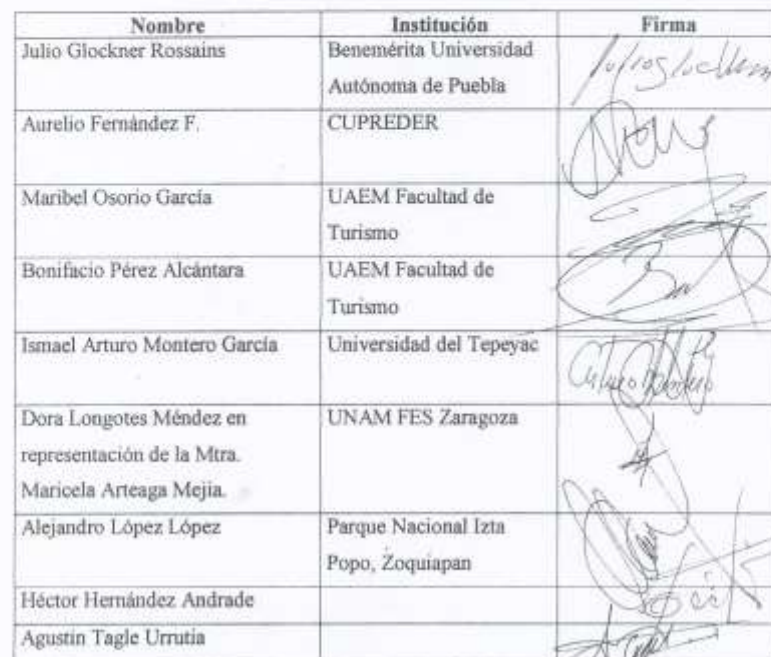 Nombre Institución Firma
Julio Glockner Rossains Benemérita Universidad
Autónoma de Puebla
Aurelio Fernández F. CUPREDER
Maribel Osorio García UAEM Facultad de
Turismo
Bonifacio Pérez Alcántara UAEM Facultad de
Turismo
Ismael Arturo Montero García Universidad del Tepeyac
Dora Longotes Méndez en UNAM FES Zaragoza
representación de la Mtra.
Maricela Arteaga Mejia.
Alejandro López López Parque Nacional Izta
Popo, Zoquiapan
Héctor Hernández Andrade
Agustin Tagle Urrutia